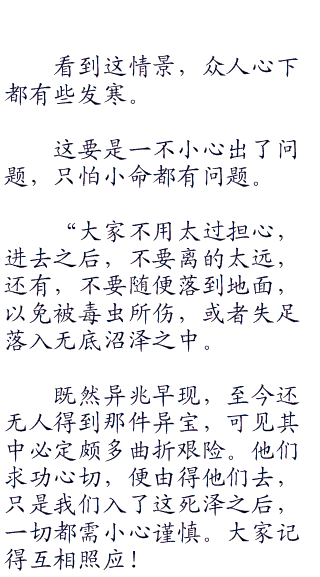 看到这情景，众人心下
都有些发寒。
这要是一不小心出了问
题，只怕小命都有问题。
“大家不用太过担心，
进去之后，不要离的太远，
还有，不要随便落到地面，
以免被毒虫所伤，或者失足
落入无底沼泽之中。
既然异兆早现，至今还
无人得到那件异宝，可见其
中必定颇多曲折艰险。他们
求功心切，便由得他们去，
只是我们入了这死泽之后，
一切都需小心谨慎。大家记
得互相照应！